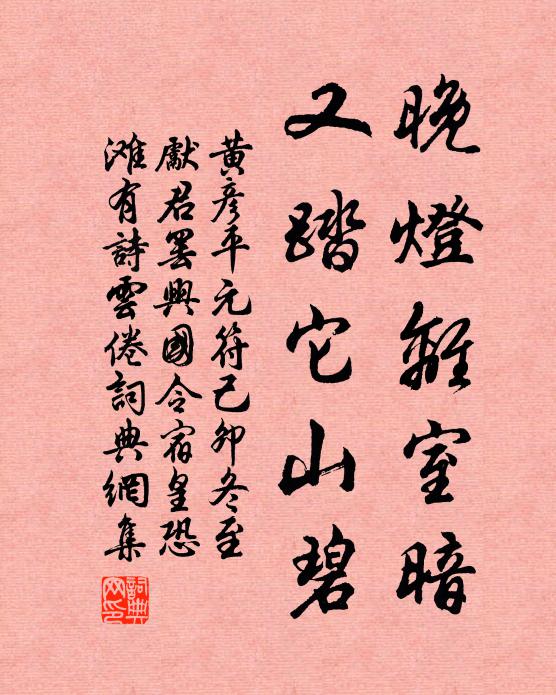 晚燈離室暗
又踏它山碧
黃彥平元符己卯冬至
獻君罢興國令宿皇恐
滩有詩雲倦詞典網集
詞典網印